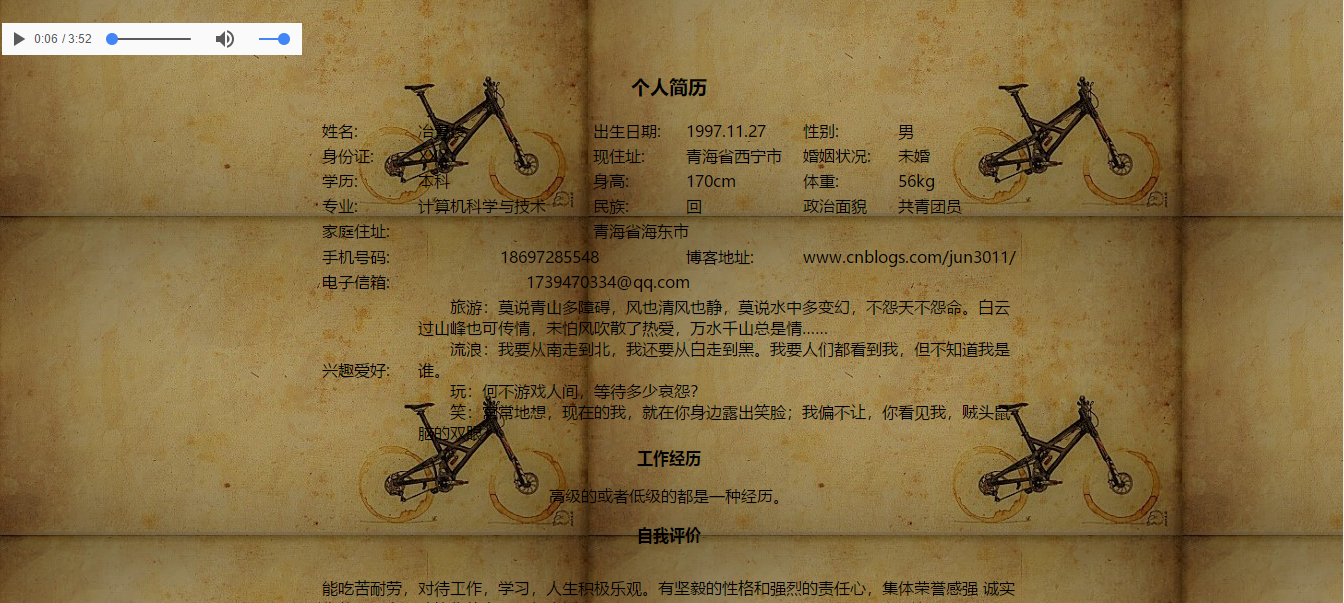 0:06 / 3:52
个人简历
姓名: 出生日期: 1997.11.27 性别: 男
身份证: 现住址: 青海省西宁市 婚姻状况: 未婚
学历: 本科 身高: 170cm 体重: 56kg
专业: 计算机科学与技术 民族: 回 政治面貌 共青团员
家庭住址: 青海省海东市
手机号码: 18697285548 博客地址: www.cnblogs.com/jun3011/
电子信箱: 1739470334@qq.com
旅游：莫说青山多障碍，风也清风也静，莫说水中多变幻，不怨天不怨命。白云
过山峰也可传情，未怕风吹散了热爱，万水千山总是情……
流浪：我要从南走到北，我还要从白走到黑。我要人们都看到我，但不知道我是
兴趣爱好: 谁。
玩：何不游戏人间，等待多少哀怨？
笑：常常地想，现在的我，就在你身边露出笑脸；我偏不让，你看见我，贼头鼠
脑的双眼
工作经历
高级的或者低级的都是一种经历。
自我评价
能吃苦耐劳，对待工作，学习，人生积极乐观。有坚毅的性格和强烈的责任心，集体荣誉感强 诚实